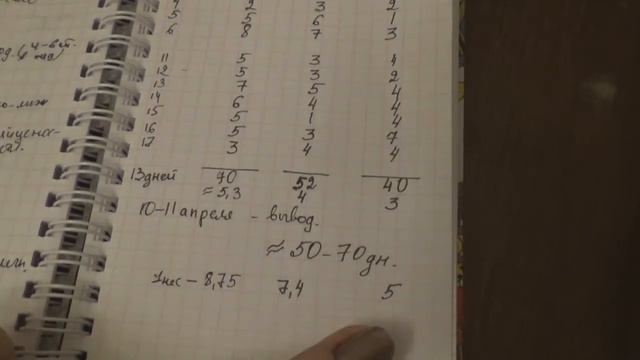 2 3 2
5 5 6 1
6 8 7 3
11 5 3 4
12 5 3 2
13 7 5 4
14 6 4 4
15 5 1 4
16 5 3 7
17 3 4 4
13 дней 70 52 40
≈ 5,3 4 3
10-11 апреля - вывод.
≈ 50-70 дн.
1 нес - 8,75 7,4 5